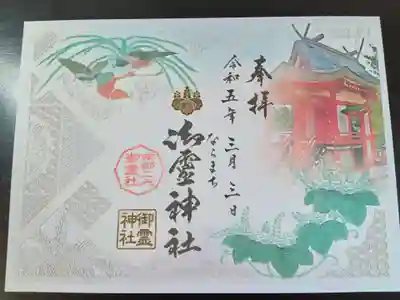 奉拝
令和五年 三月三日
ならまち
御霊神社
御霊神社